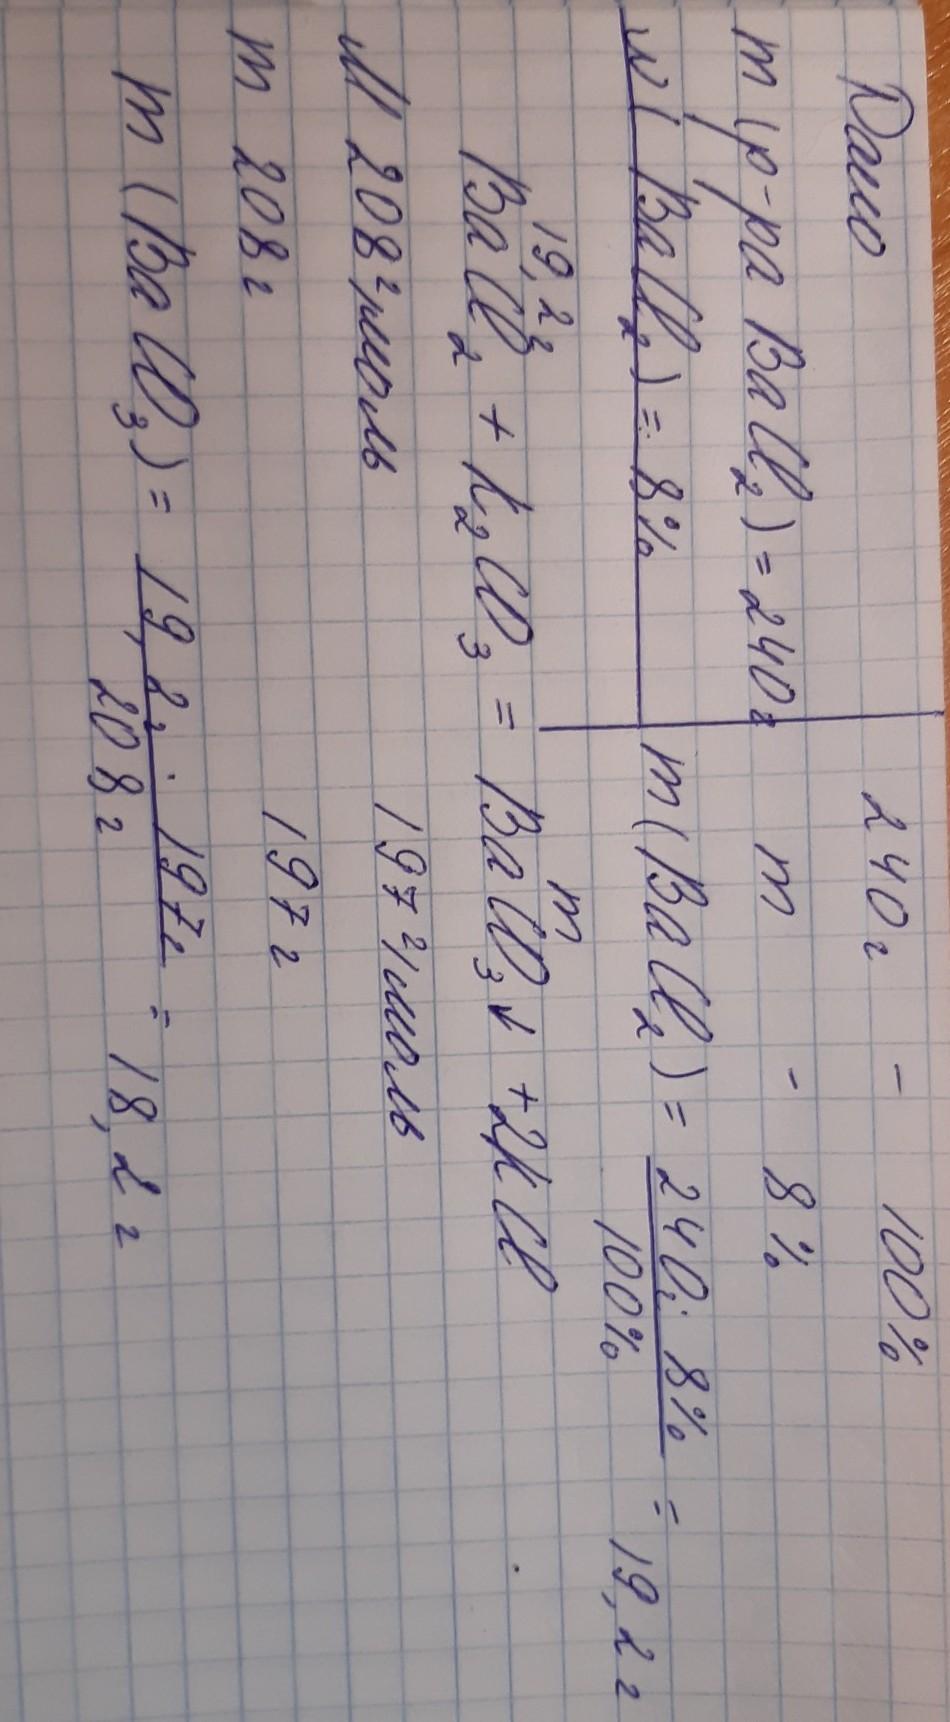 Дано
240г - 100%
m (р-ра BaCl₂) = 240г
m - 8%
w( BaCl₂) = 8%
m(BaCl₂) = 240г · 8% / 100% = 19,2г
19,2г m
BaCl₂ + K₂CO₃ = BaCO₃↓ + 2KCl
M 208 г/моль 197 г/моль
m 208г 197г
m (BaCO₃) = 19,2г · 197г / 208г = 18,2г